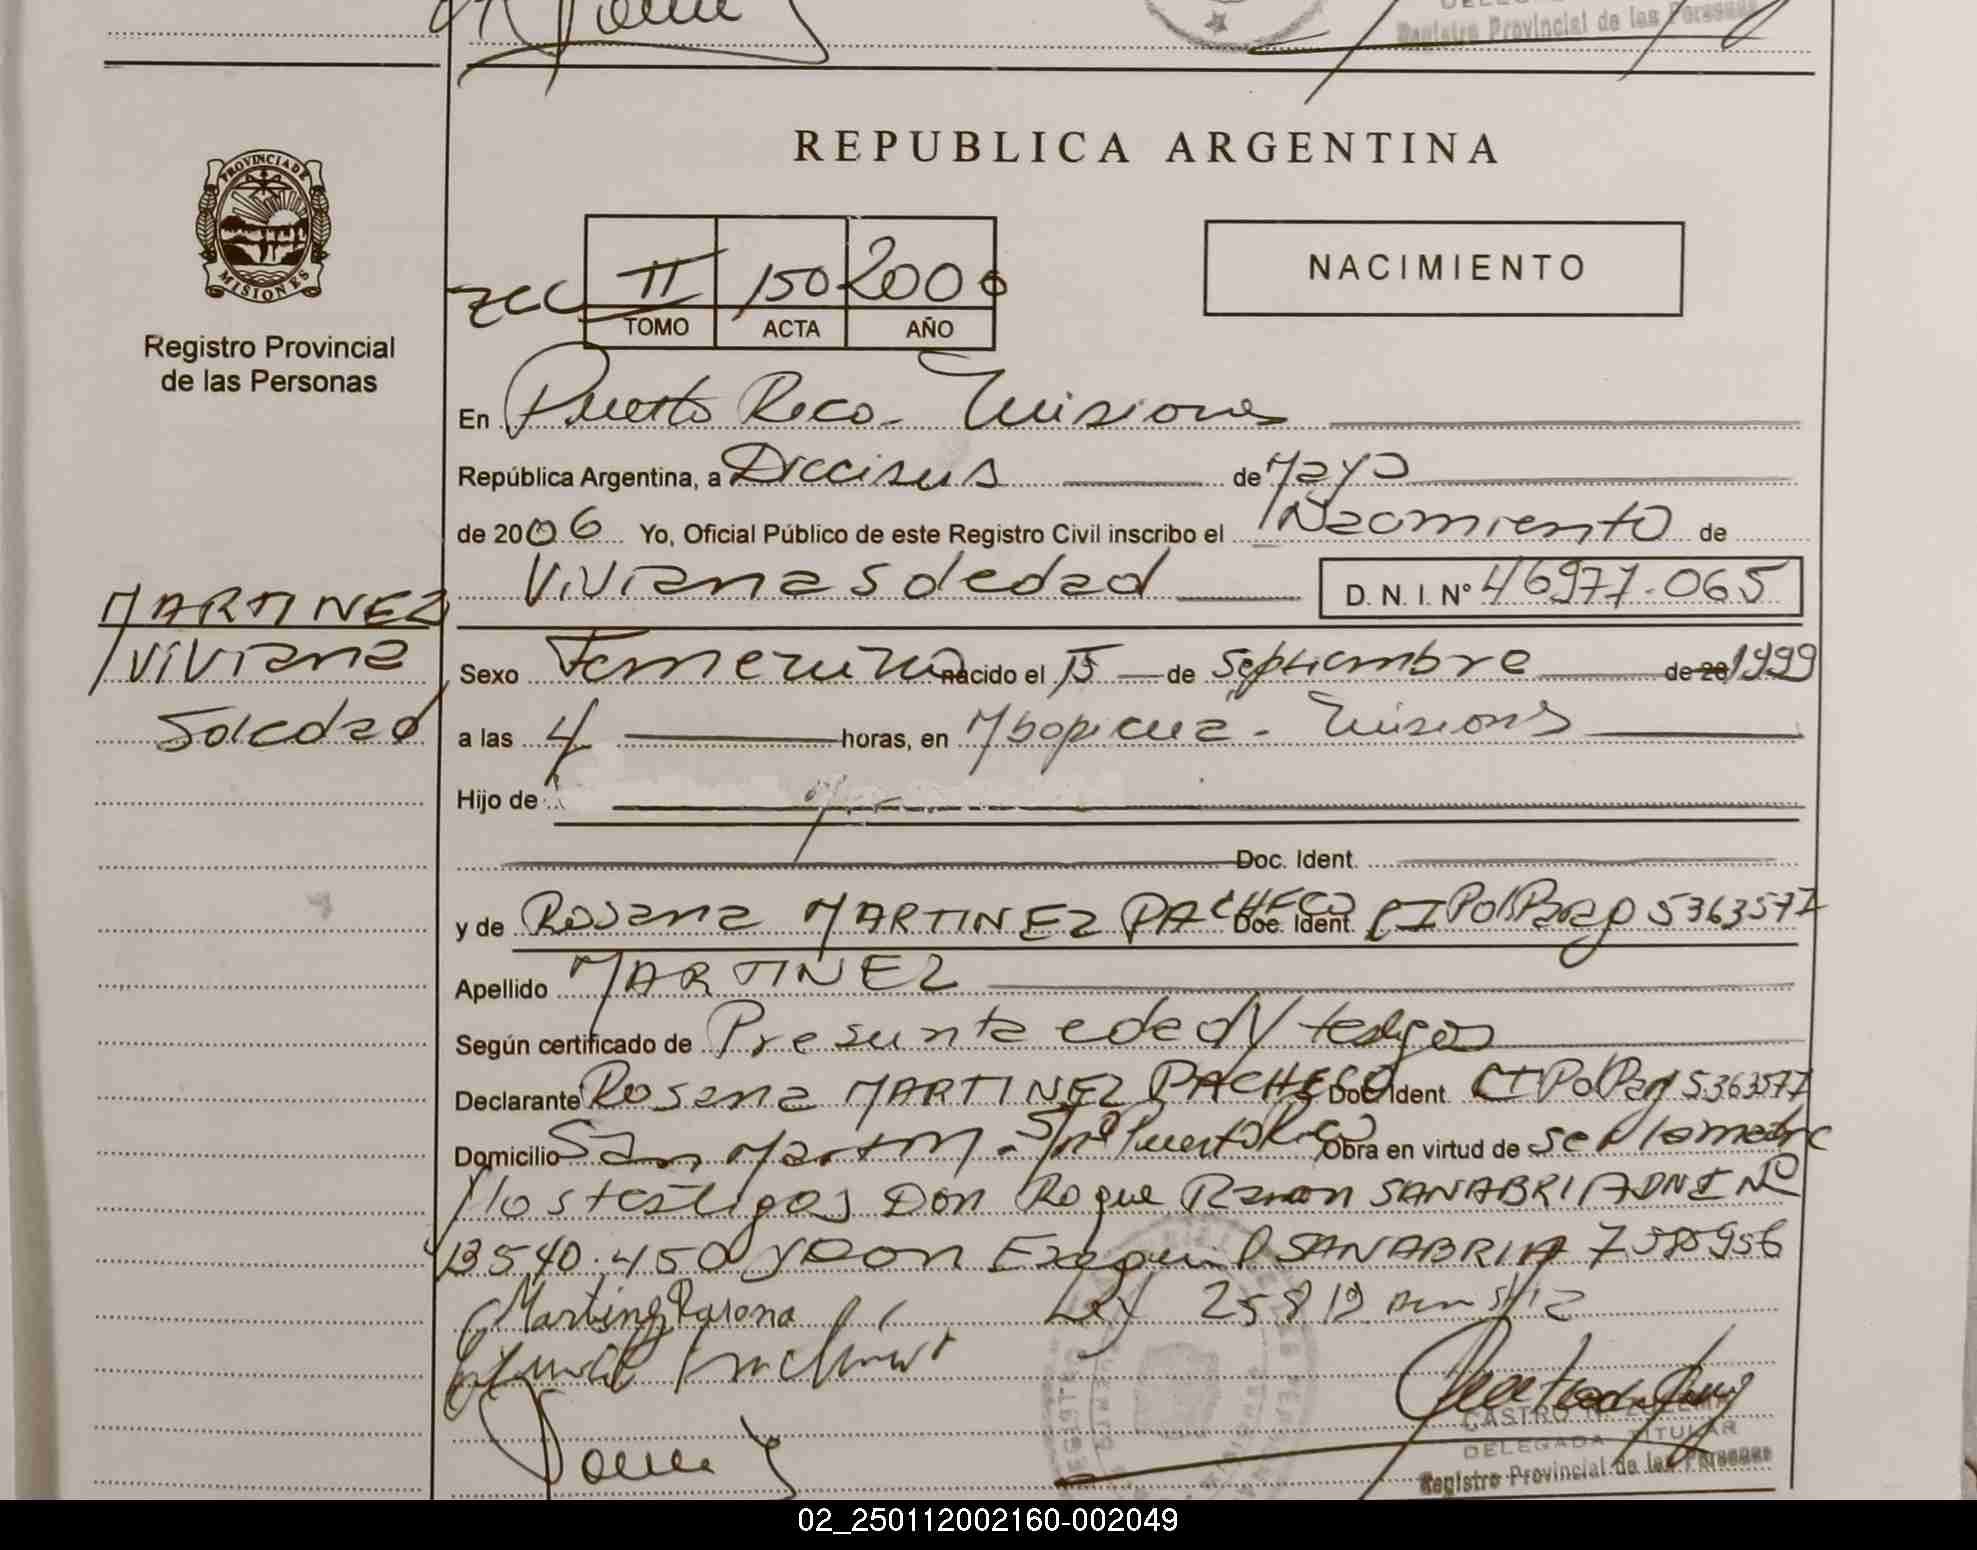 Registro Provincial de las Personas
PROVINCIA DE
MISIONES
Registro Provincial
de las Personas
REPUBLICA ARGENTINA
II 150 2006
TOMO ACTA AÑO
NACIMIENTO
En Puerto Rico - Misiones
República Argentina, a Dieciseis de Mayo
de 2006 Yo, Oficial Público de este Registro Civil inscribo el Nacimiento de
Viviana Soledad D.N.I. N° 46977.065
MARTINEZ
Viviana
Soledad
Sexo Femenino nacido el 15 de Septiembre de 20 1999
a las 4 horas, en Mbopicua - Misiones
Hijo de
Doc. Ident.
y de Rosana MARTINEZ PACHECO Doc. Ident. CI Pol Parag 5363577
Apellido MARTINEZ
Según certificado de Presunta edad y testigos
Declarante Rosana MARTINEZ PACHECO Doc. Ident. CI Pol Parag 5363577
Domicilio San Martin - Puerto Rico Obra en virtud de ser la madre
y los testigos Don Roque Ramon SANABRIA DNI N°
13540.450 y Don Exequiel SANABRIA 7585956
Martinez Rosana Ley 25819
CASTRO
DELEGADA TITULAR
Registro Provincial de las Personas
02_250112002160-002049